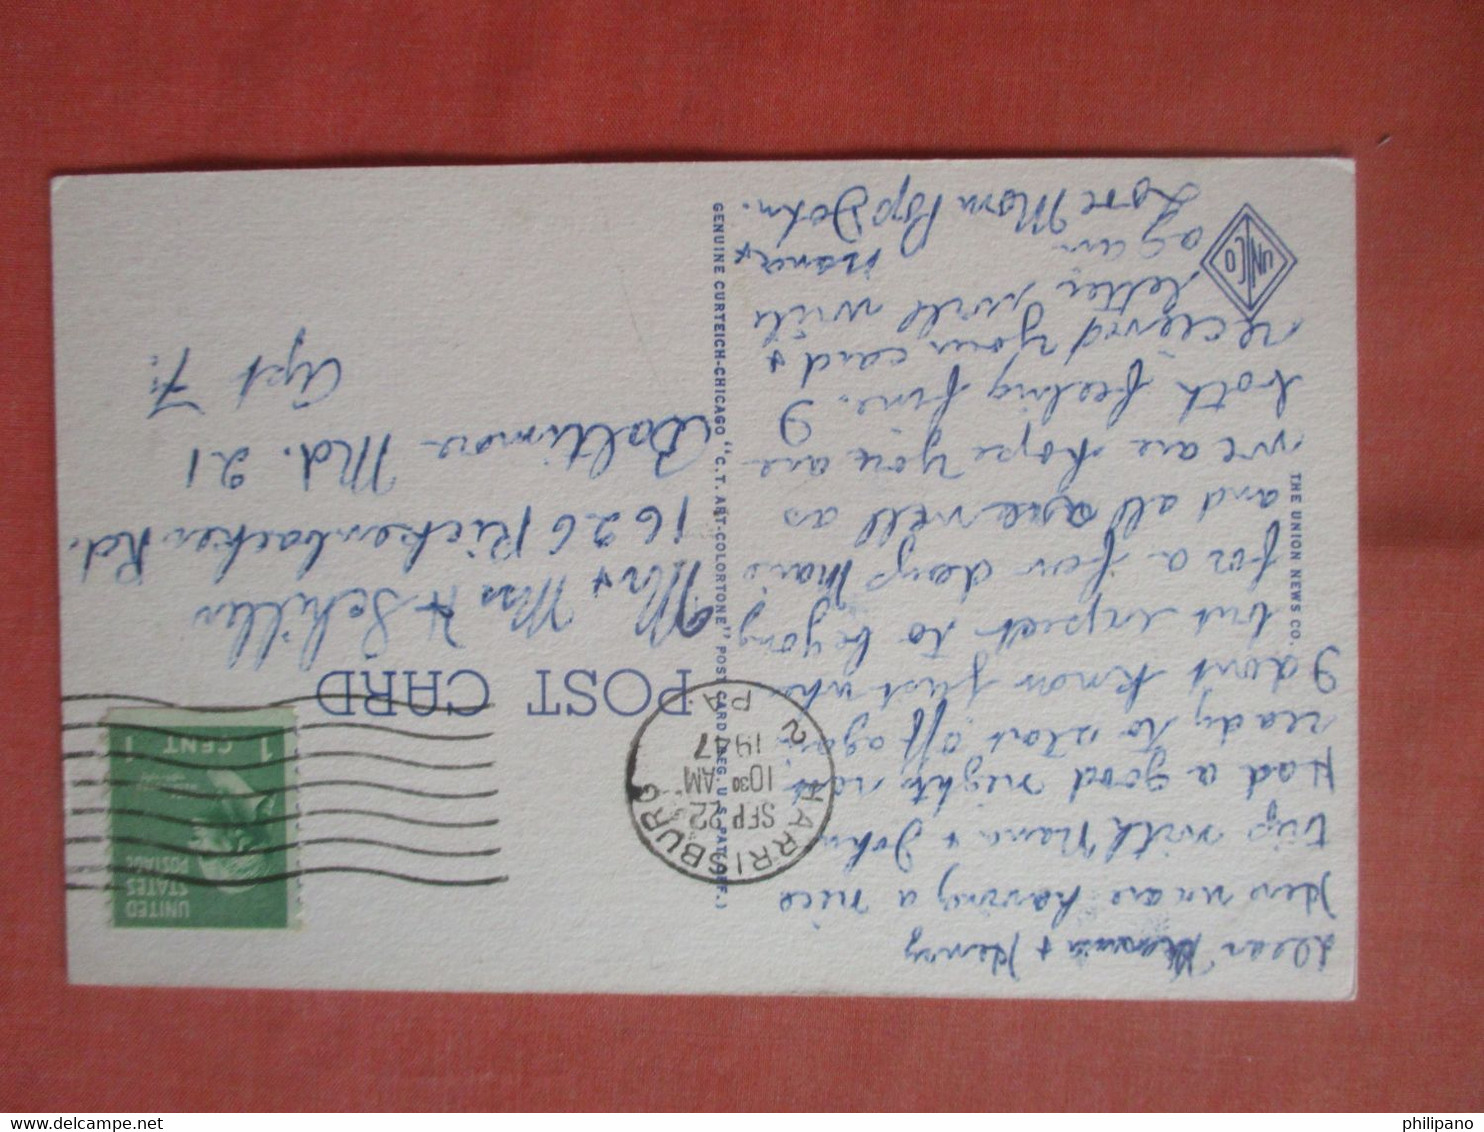 Dear & Henry
Here we are having a nice
trip with Nana & John
Had a good night now
ready to start off again
I dont know just who
but expect to be gone
for a few days
and all are well as
we are hope you are
both feeling fine. I
received your card &
letter will write
again
Love Mom Pop Nana &
John.
THE UNION NEWS CO.
UNCO
GENUINE CURTEICH-CHICAGO "C. T. ART-COLORTONE" POST CARD (REG. U. S. PAT. OFF.)
POST CARD
UNITED
STATES
POSTAGE
1 CENT 1
HARRISBURG
SEP 22
10 30 AM
1947
2
PA
Mr & Mrs H Schiller
1626 Rickenbacker Rd.
Baltimore Md. 21
Apt 7.
philipano
delcampe.net